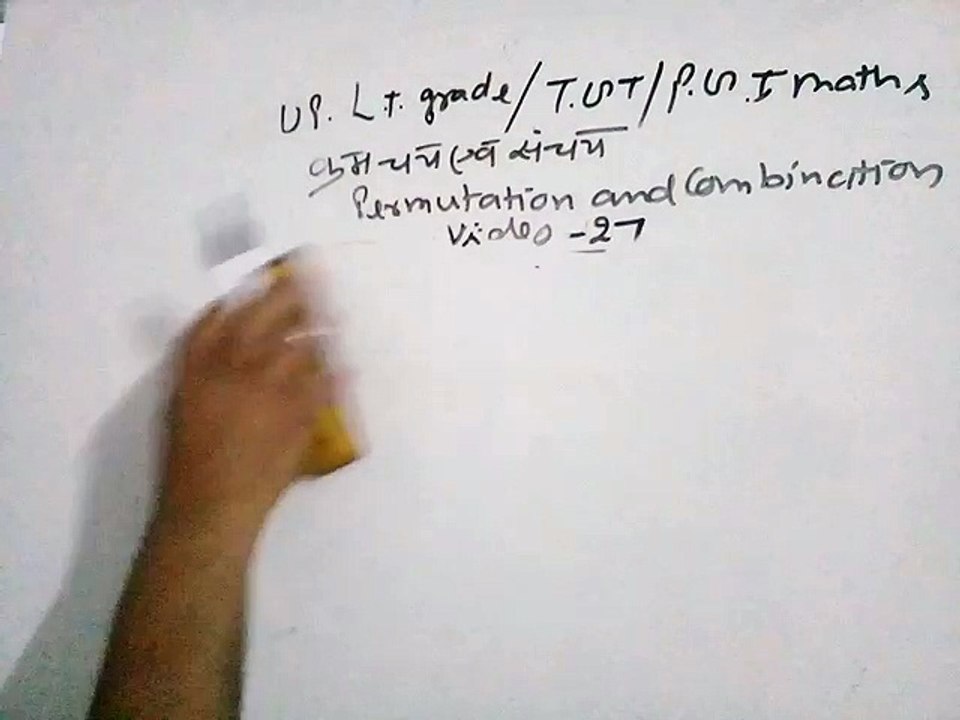 UP. L.t. grade/T.G.T/P.G.T maths
क्रमचय एवं संचय
Permutation and Combincition
Video -27